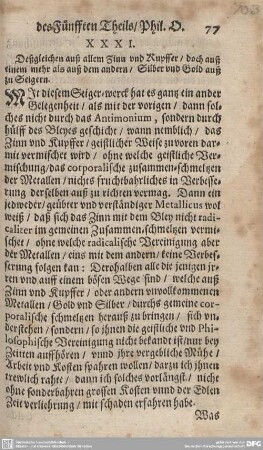 des Fünfften Theils/ Phil. O. 77
XXXI.
Deßgleichen auß allem Zinn vnd Kupffer/ doch auß
einem mehr als auß dem andern/ Silber vnd Gold auß
zu Seigern.
MIt diesem Seigerwerck hat es gantz ein ander
Gelegenheit/ als mit der vorigen/ dann sol-
ches nicht durch das Antimonium, sondern durch
hülff des Bleyes geschicht/ wann nemblich/ das
Zinn vnd Kupffer/ geistlicher Weise zu voren dar-
mit vermischet wird/ ohne welche geistliche Ver-
mischung/ das corporalische zusammen-schmeltzen
der Metallen/ nichts fruchtbahrliches in Verbesse-
rung derselben auß zu richten vermag. Dann ein
jedweder/ geübter vnd verständiger Metallicus wol
weiß/ daß sich das Zinn mit dem Bley nicht radi-
caliter im gemeinen Zusammen-schmeltzen vermi-
schet/ ohne welche radicalische Vereinigung aber
der Metallen/ eins mit dem andern/ keine Verbes-
serung folgen kan: Derohalben alle die jenigen jr-
ren vnd auff einem bösen Wege sind/ welche auß
Zinn vnd Kupffer/ oder andern vnvollkommenen
Metallen/ Gold vnd Silber/ durchs gemeine cor-
poralische schmeltzen herauß zu bringen/ sich vn-
derstehen/ sondern/ so ihnen die geistliche vnd Phi-
losophische Vereinigung nicht bekandt ist/ nur bey
Zeiten auffhören/ vnnd jhre vergebliche Mühe/
Arbeit vnd Kosten spahren wollen/ darzu ich jhnen
trewlich rahte/ dann ich solches vorlängst/ nicht
ohne sonderbahren grossen Kosten vnnd der Edlen
Zeit verliehrung/ mit schaden erfahren habe.
Was